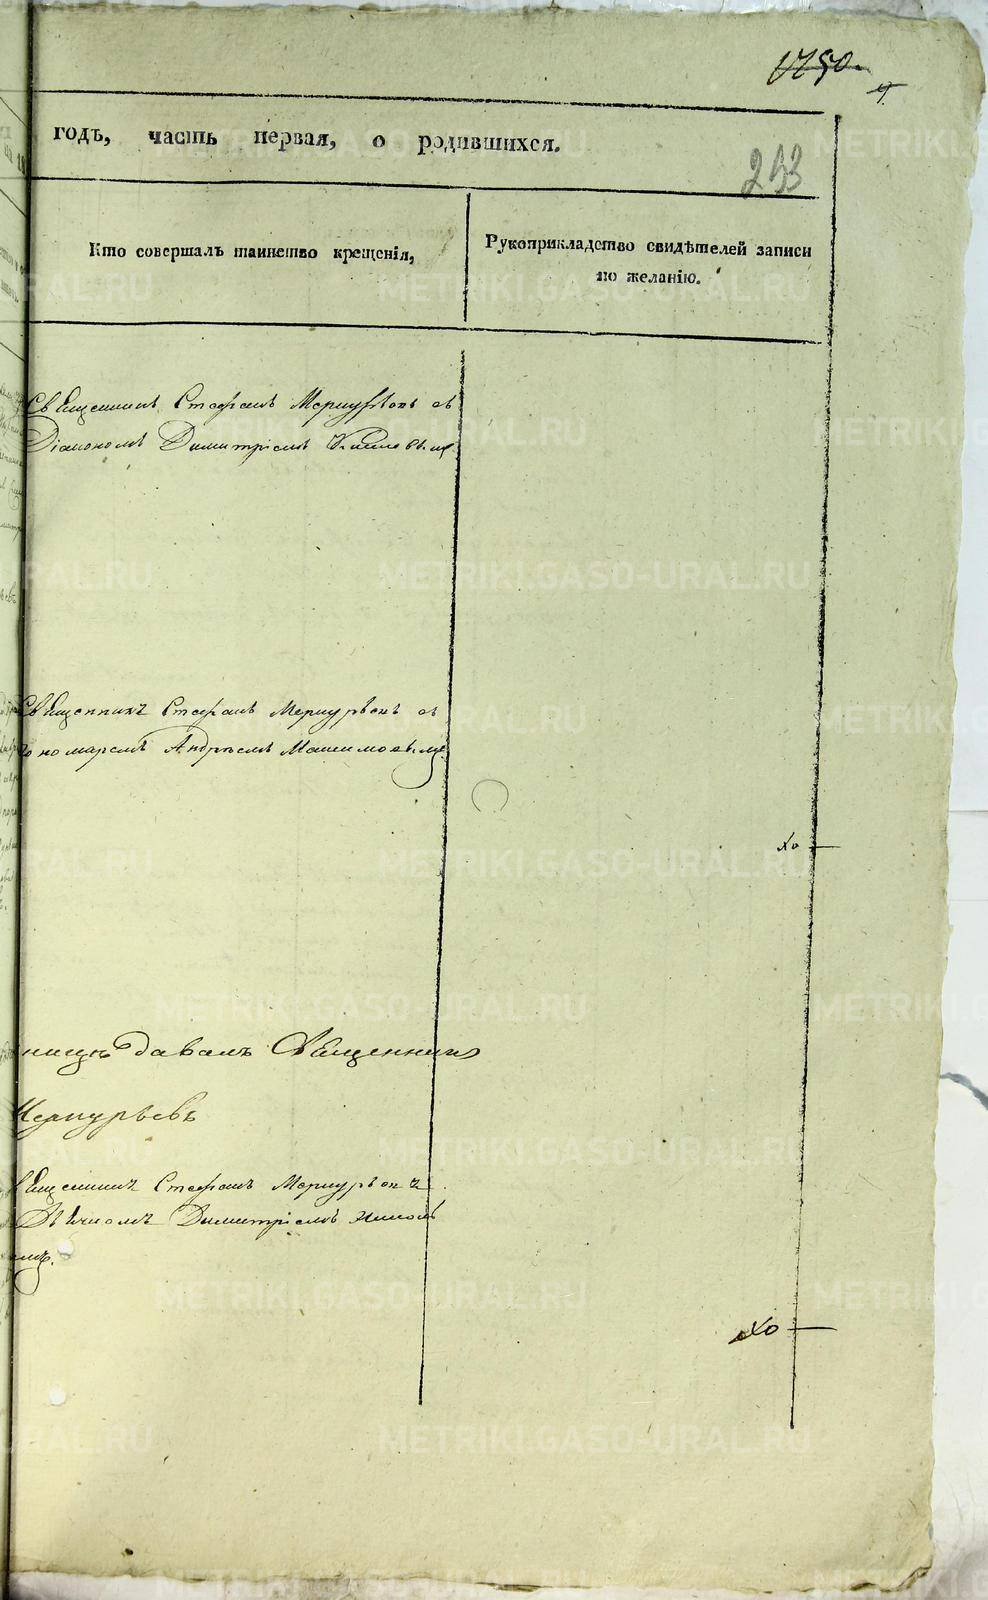 1750.
4.
годъ, часть первая, о родившихся.
253
Кто совершалъ таинство крещенія,
Рукоприкладство свидѣтелей записи
по желанію.
Священникъ Стефанъ Меркурьевъ съ
Діакономъ Димитріемъ
Священникъ Стефанъ Меркурьевъ съ
Пономаремъ Андреемъ Машимовымъ.
Хо
давалъ Священникъ
Меркурьевъ
Священникъ Стефанъ Меркурьевъ
Димитріемъ
Хо
METRIKI.GASO-URAL.RU